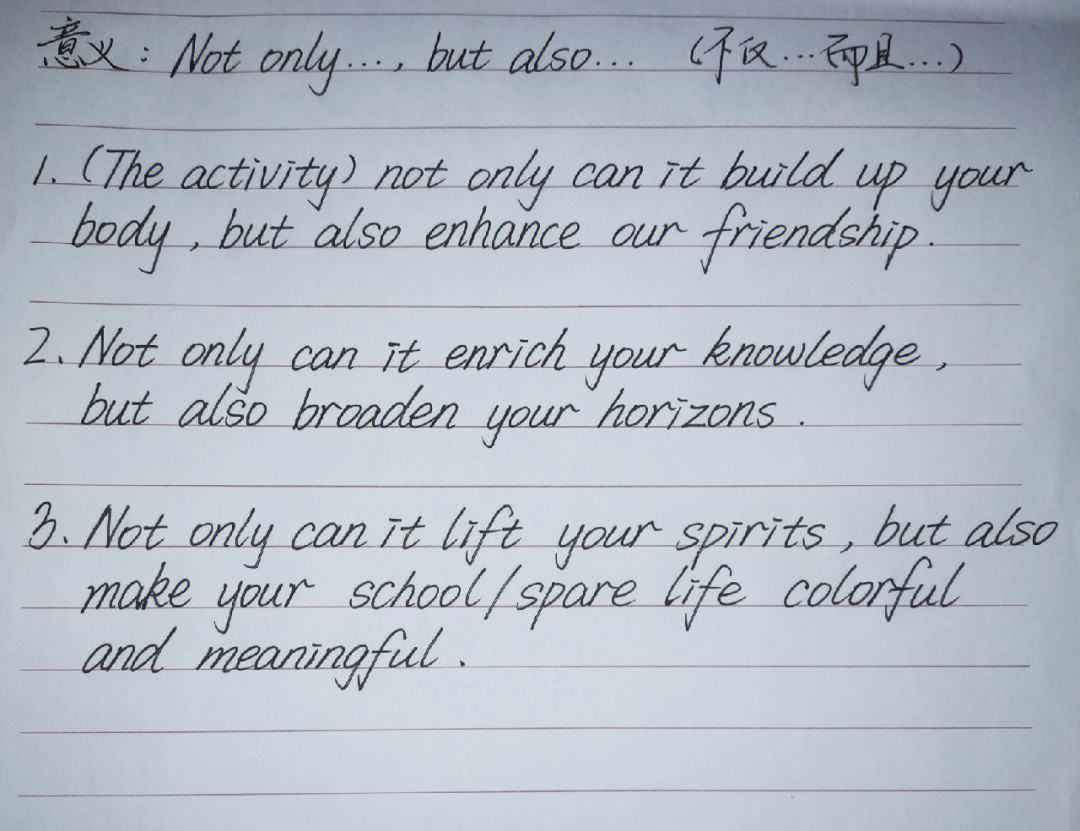 意义：Not only...，but also... (不仅...而且...)
1. (The activity) not only can it build up your
body, but also enhance our friendship.
2. Not only can it enrich your knowledge,
but also broaden your horizons.
3. Not only can it lift your spirits, but also
make your school/spare life colorful
and meaningful.